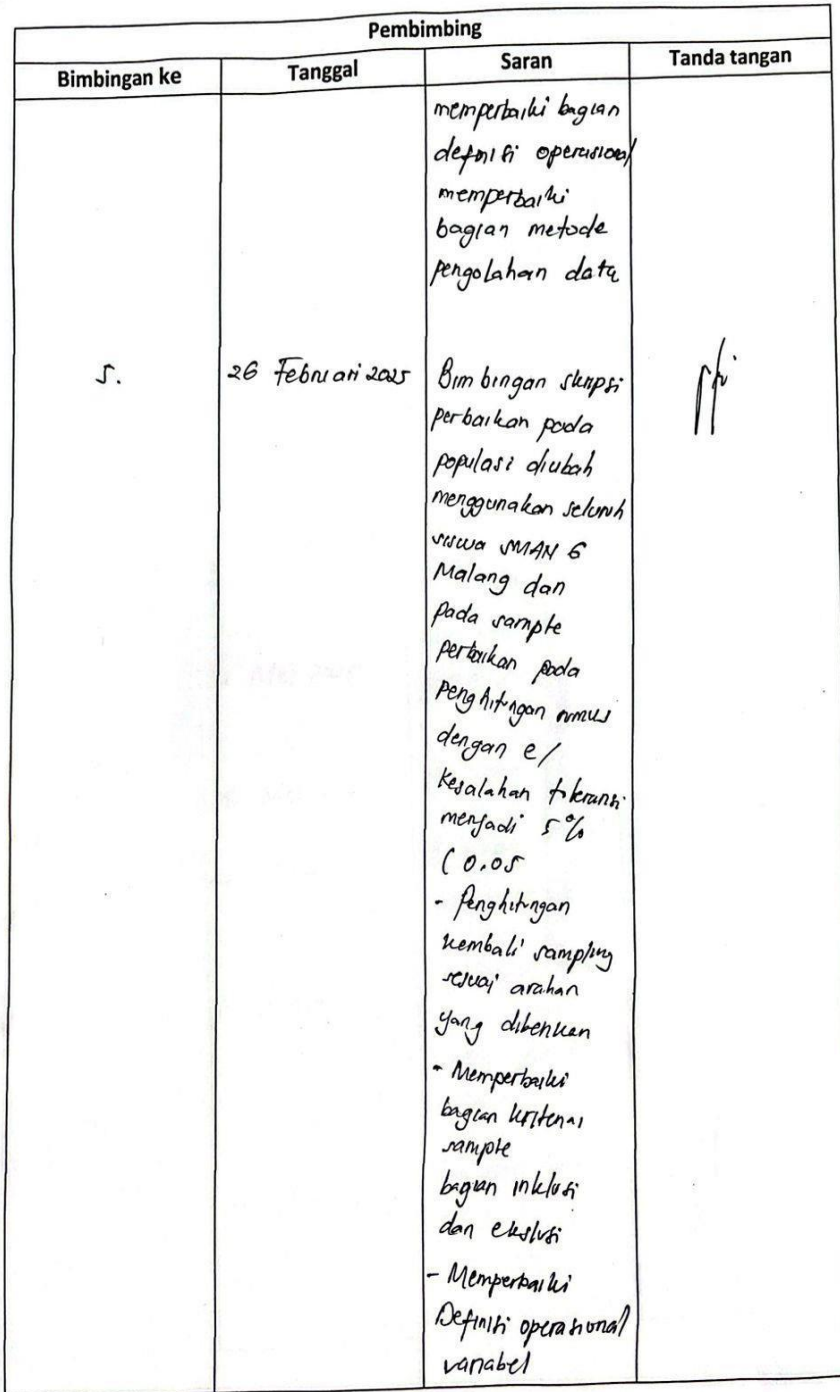 Pembimbing
Bimbingan ke Tanggal Saran Tanda tangan
memperbaiki bagian
definisi operasional
memperbaiki
bagian metode
pengolahan data
5. 26 Februari 2025 Bimbingan skripsi
perbaikan pada
populasi diubah
menggunakan seluruh
siswa SMAN 6
Malang dan
pada sample
perbaikan pada
penghitungan rumus
dengan e/
kesalahan toleransi
menjadi 5%
(0.05
- Penghitungan
kembali sampling
sesuai arahan
yang diberikan
- Memperbaiki
bagian kriteria
sample
bagian inklusi
dan ekslusi
- Memperbaiki
Definisi operasional
variabel